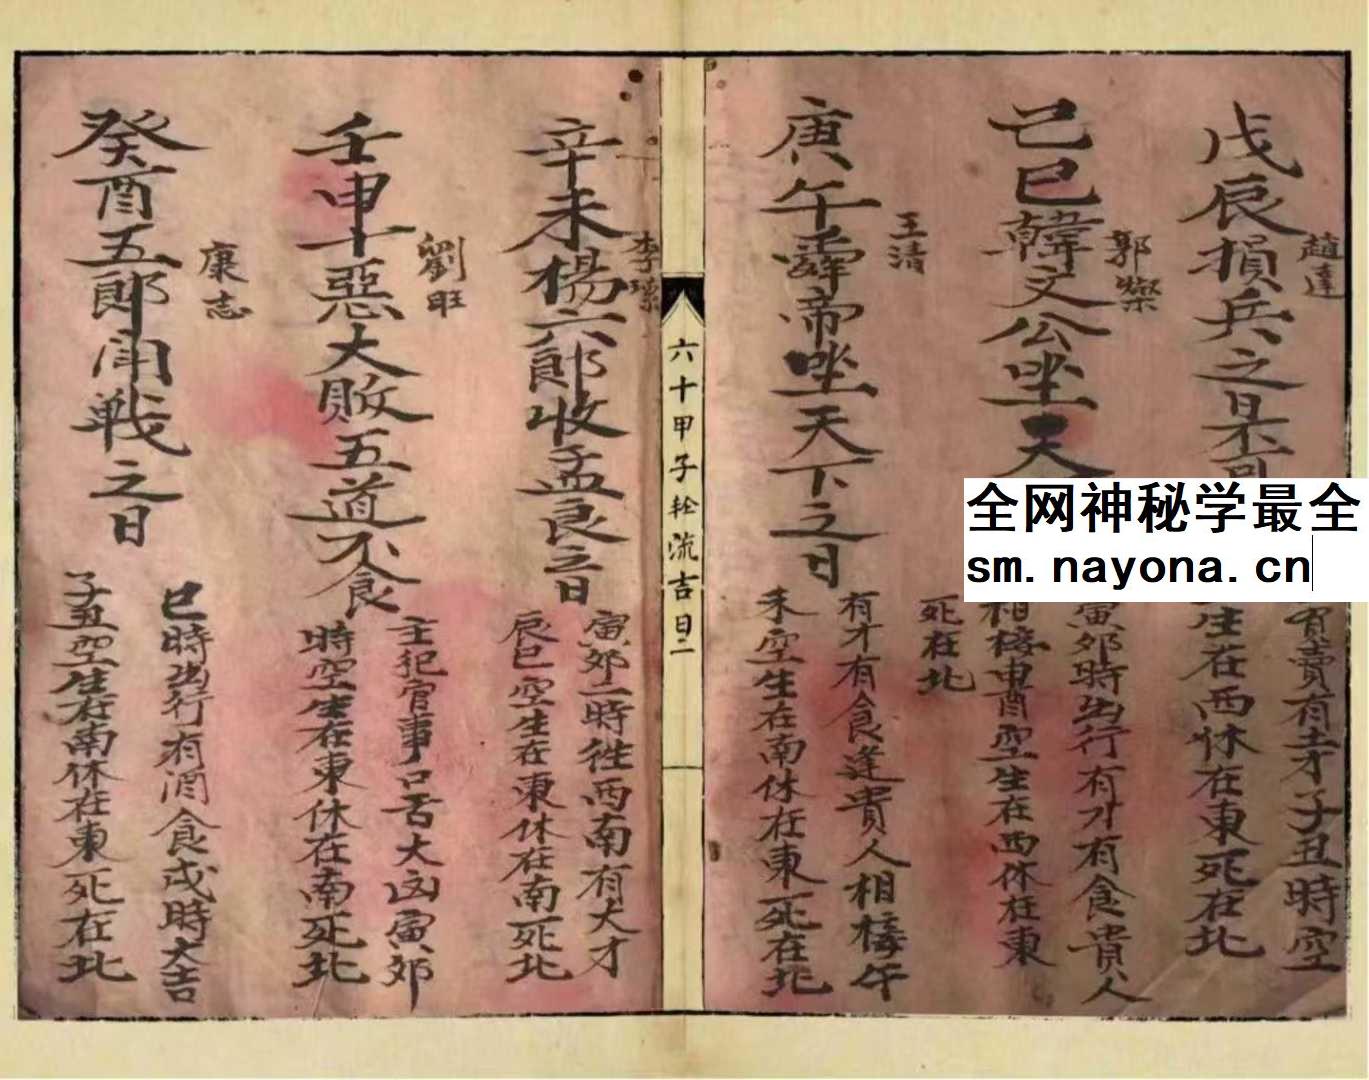 趙達
戊辰損兵之日不可
買賣有土才子丑時空
生在西休在東死在北
郭燦
己巳韓文公坐天
寅郊時出行有才有食貴人
相接申酉空生在西休在東
死在北
王清
庚午舜帝坐天下之日
有才有食逢貴人相接午
未空生在南休在東死在北
六十甲子轮流吉日二
李
辛未楊六郎收孟良之日
寅郊二時徃西南有大才
辰巳空生在東休在南死北
劉旺
壬申十惡大敗五道不食
主犯官事口舌大凶寅郊
時空生在東休在南死北
康志
癸酉五郎開戰之日
巳時出行有酒食戌時大吉
子丑空生在南休在東死在北
全网神秘学最全
sm.nayona.cn